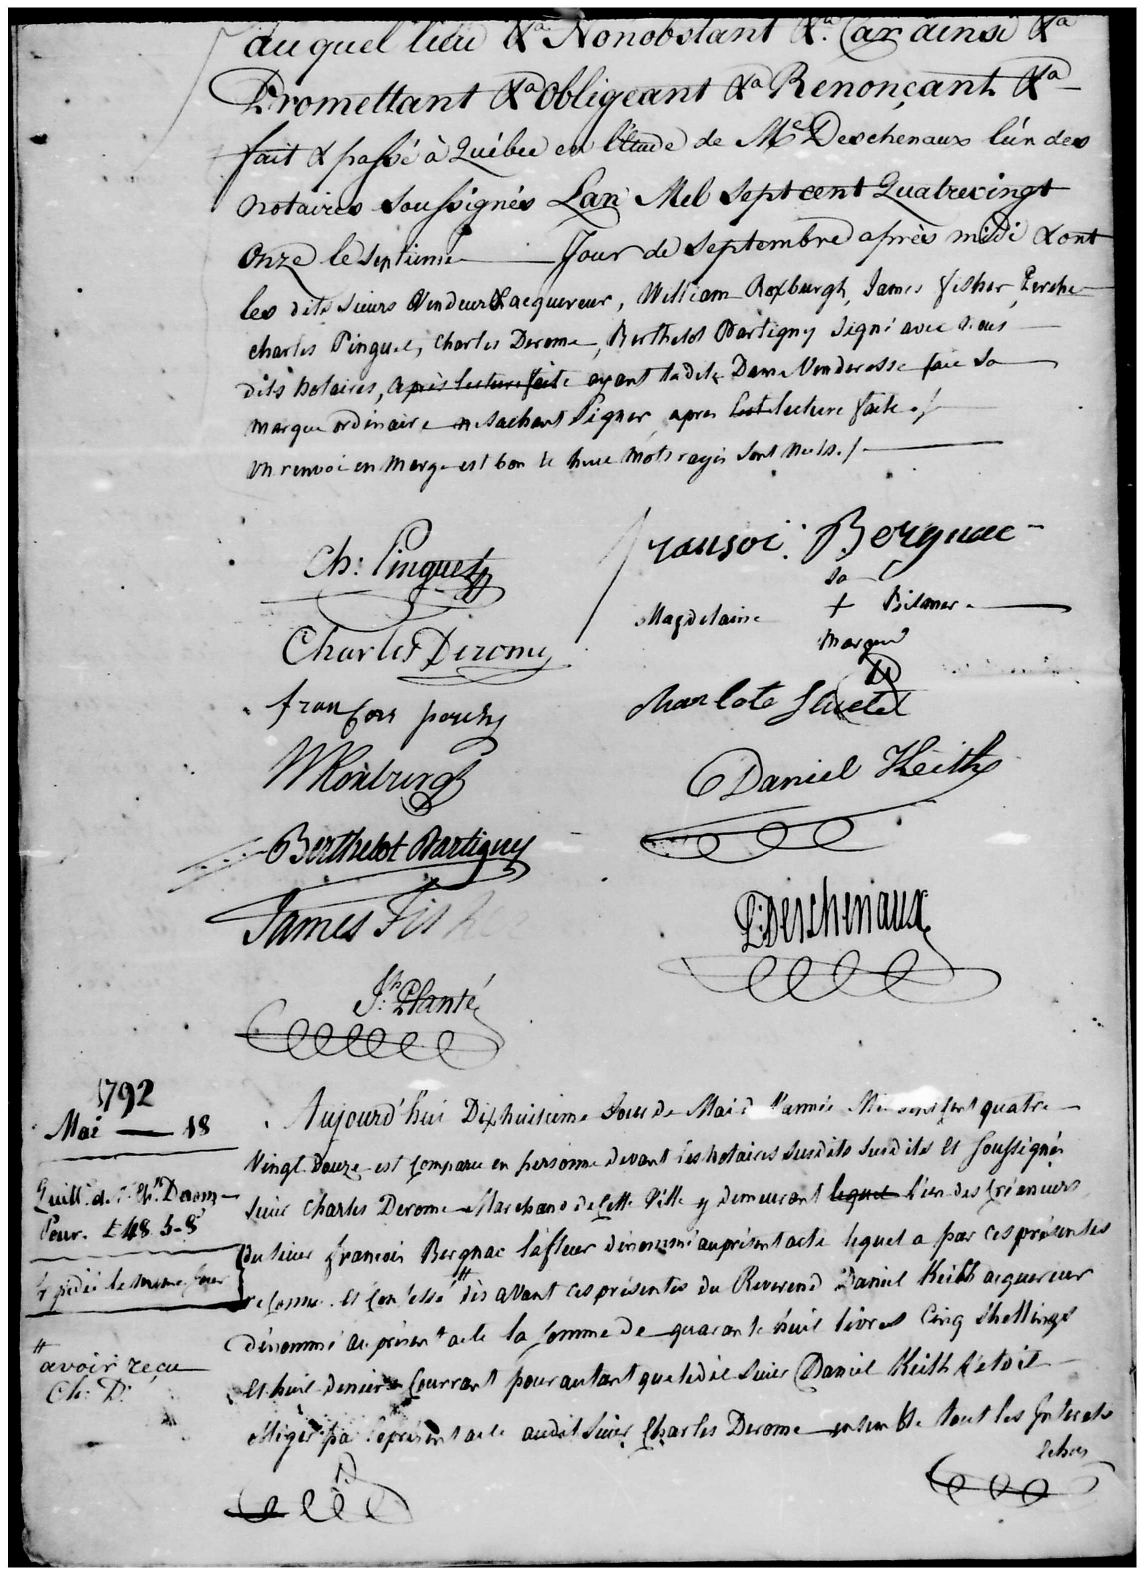 auquel lieu &a. Nonobstant &a. Car ainsi &a
Promettant &a Obligeant &a Renonçant &a
fait & passé à Québec en l'étude de Me Deschenaux l'un des
notaires soussignés L'an Mil sept cent Quatrevingt
Onze le septieme Jour de Septembre après midi & ont
les dits sieurs Vendeur & acquereur, William Roxburgh, James Fisher, Perche
Charles Pinguet, Charles Derome, Berthelot Dartigny signé avec nous
dits Notaires, après lecture faite ayant ladite Dame Venderesse fait sa
marque ordinaire ne sachant Signer, après lecture faite ./.
Un renvoi en marge est bon le huit mots rayés sont nuls ./.
Ch: Pinguet
françois Bergnac
sa
Magdelaine + Bilamer
marque
Charles Derome
D
françois perche
Charlote
WRoxburgh
Daniel Keith
Berthelot Dartigny
James Fisher
P: L: Deschenaux
Jh: Planté
1792
Mai — 18
Quitt: de Sr. Chs. Derome
Pour. £48. 5 - 8
Expedié le même jour
#
avoir reçu
Ch: D:
Aujourd'hui Dixhuitieme Jour de Mai de l'année Mil sept cent quatre
Vingt Douze est comparu en personne devant les notaires susdits susdits et soussignés
Sieur Charles Derome Marchand de cette Ville y demeurant lequel l'un des créanciers
Du sieur françois Bergnac lafleur dénommé au présent acte lequel a par ces présentes
reconnu et confessé # dès avant ces présentes du Reverend Daniel Keith acquereur
dénommé au présent acte la somme de quarante huit livres Cinq Shellings
et huit deniers Courrant pour autant que ledit sieur Daniel Keith s'etoit
obligé par le présent acte audit Sieur Charles Derome ensemble tout les Interets
D